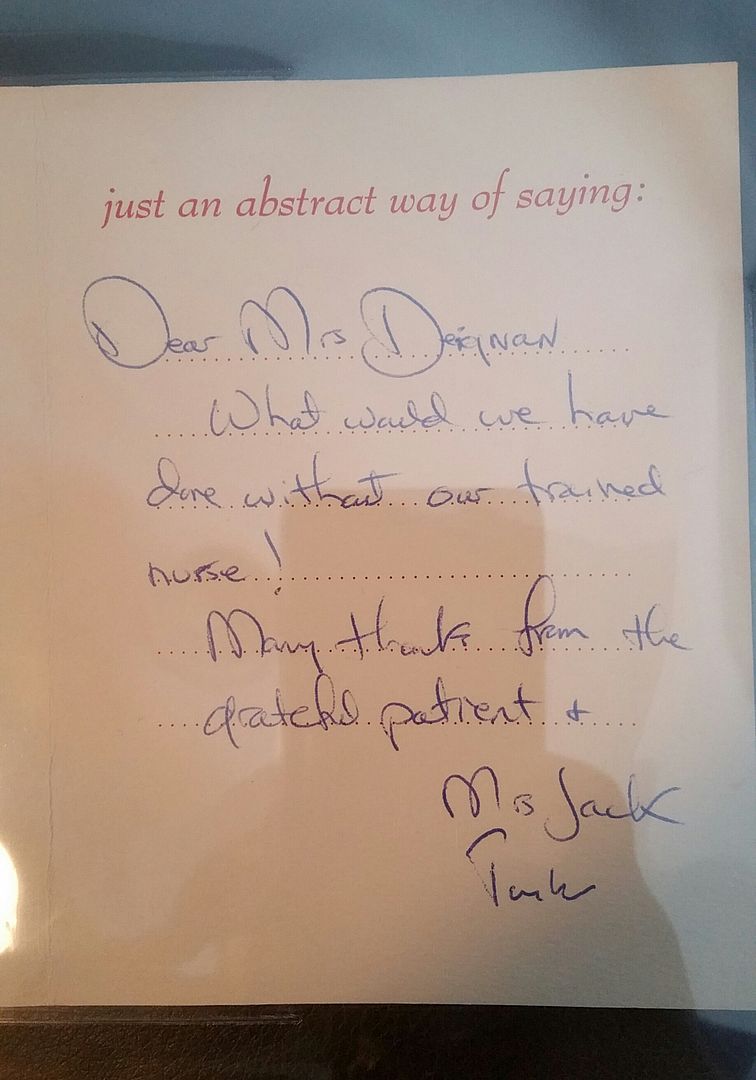 just an abstract way of saying:
Dear Mrs Deignan
What would we have
done without our trained
nurse!
Many thanks from the
grateful patient +
Mrs Jack